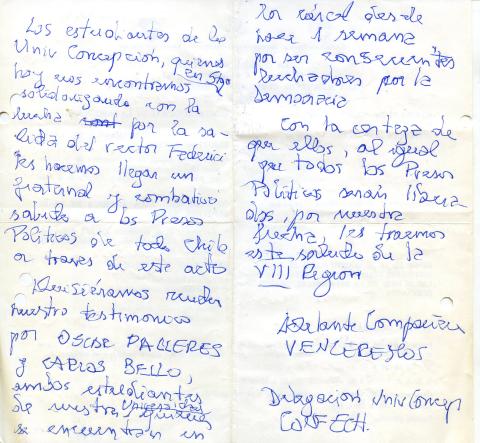 Los estudiantes de la
Univ Concepción, quienes
hoy nos encontramos en Stgo
solidarizando con la
lucha por la sa-
lida del rector Federici
les hacemos llegar un
fraternal y combativo
saludo a los Presos
Políticos de todo Chile
a traves de este acto
Quisiéramos rendir
nuestro testimonio
por OSCAR PALLERES
y CARLOS BELLO,
ambos estudiantes
de nuestra Universidad
se encuentran en
la cárcel desde
hace 1 semana
por ser consecuentes
luchadores por la
democracia
Con la certeza de
que ellos, al igual
que todos los Presos
Políticos serán libera
dos, por nuestra
lucha, les traemos
este saludo de la
VIII Region
Adelante Compañeros
VENCEREMOS
Delegacion Univ Concep
CONFECH.